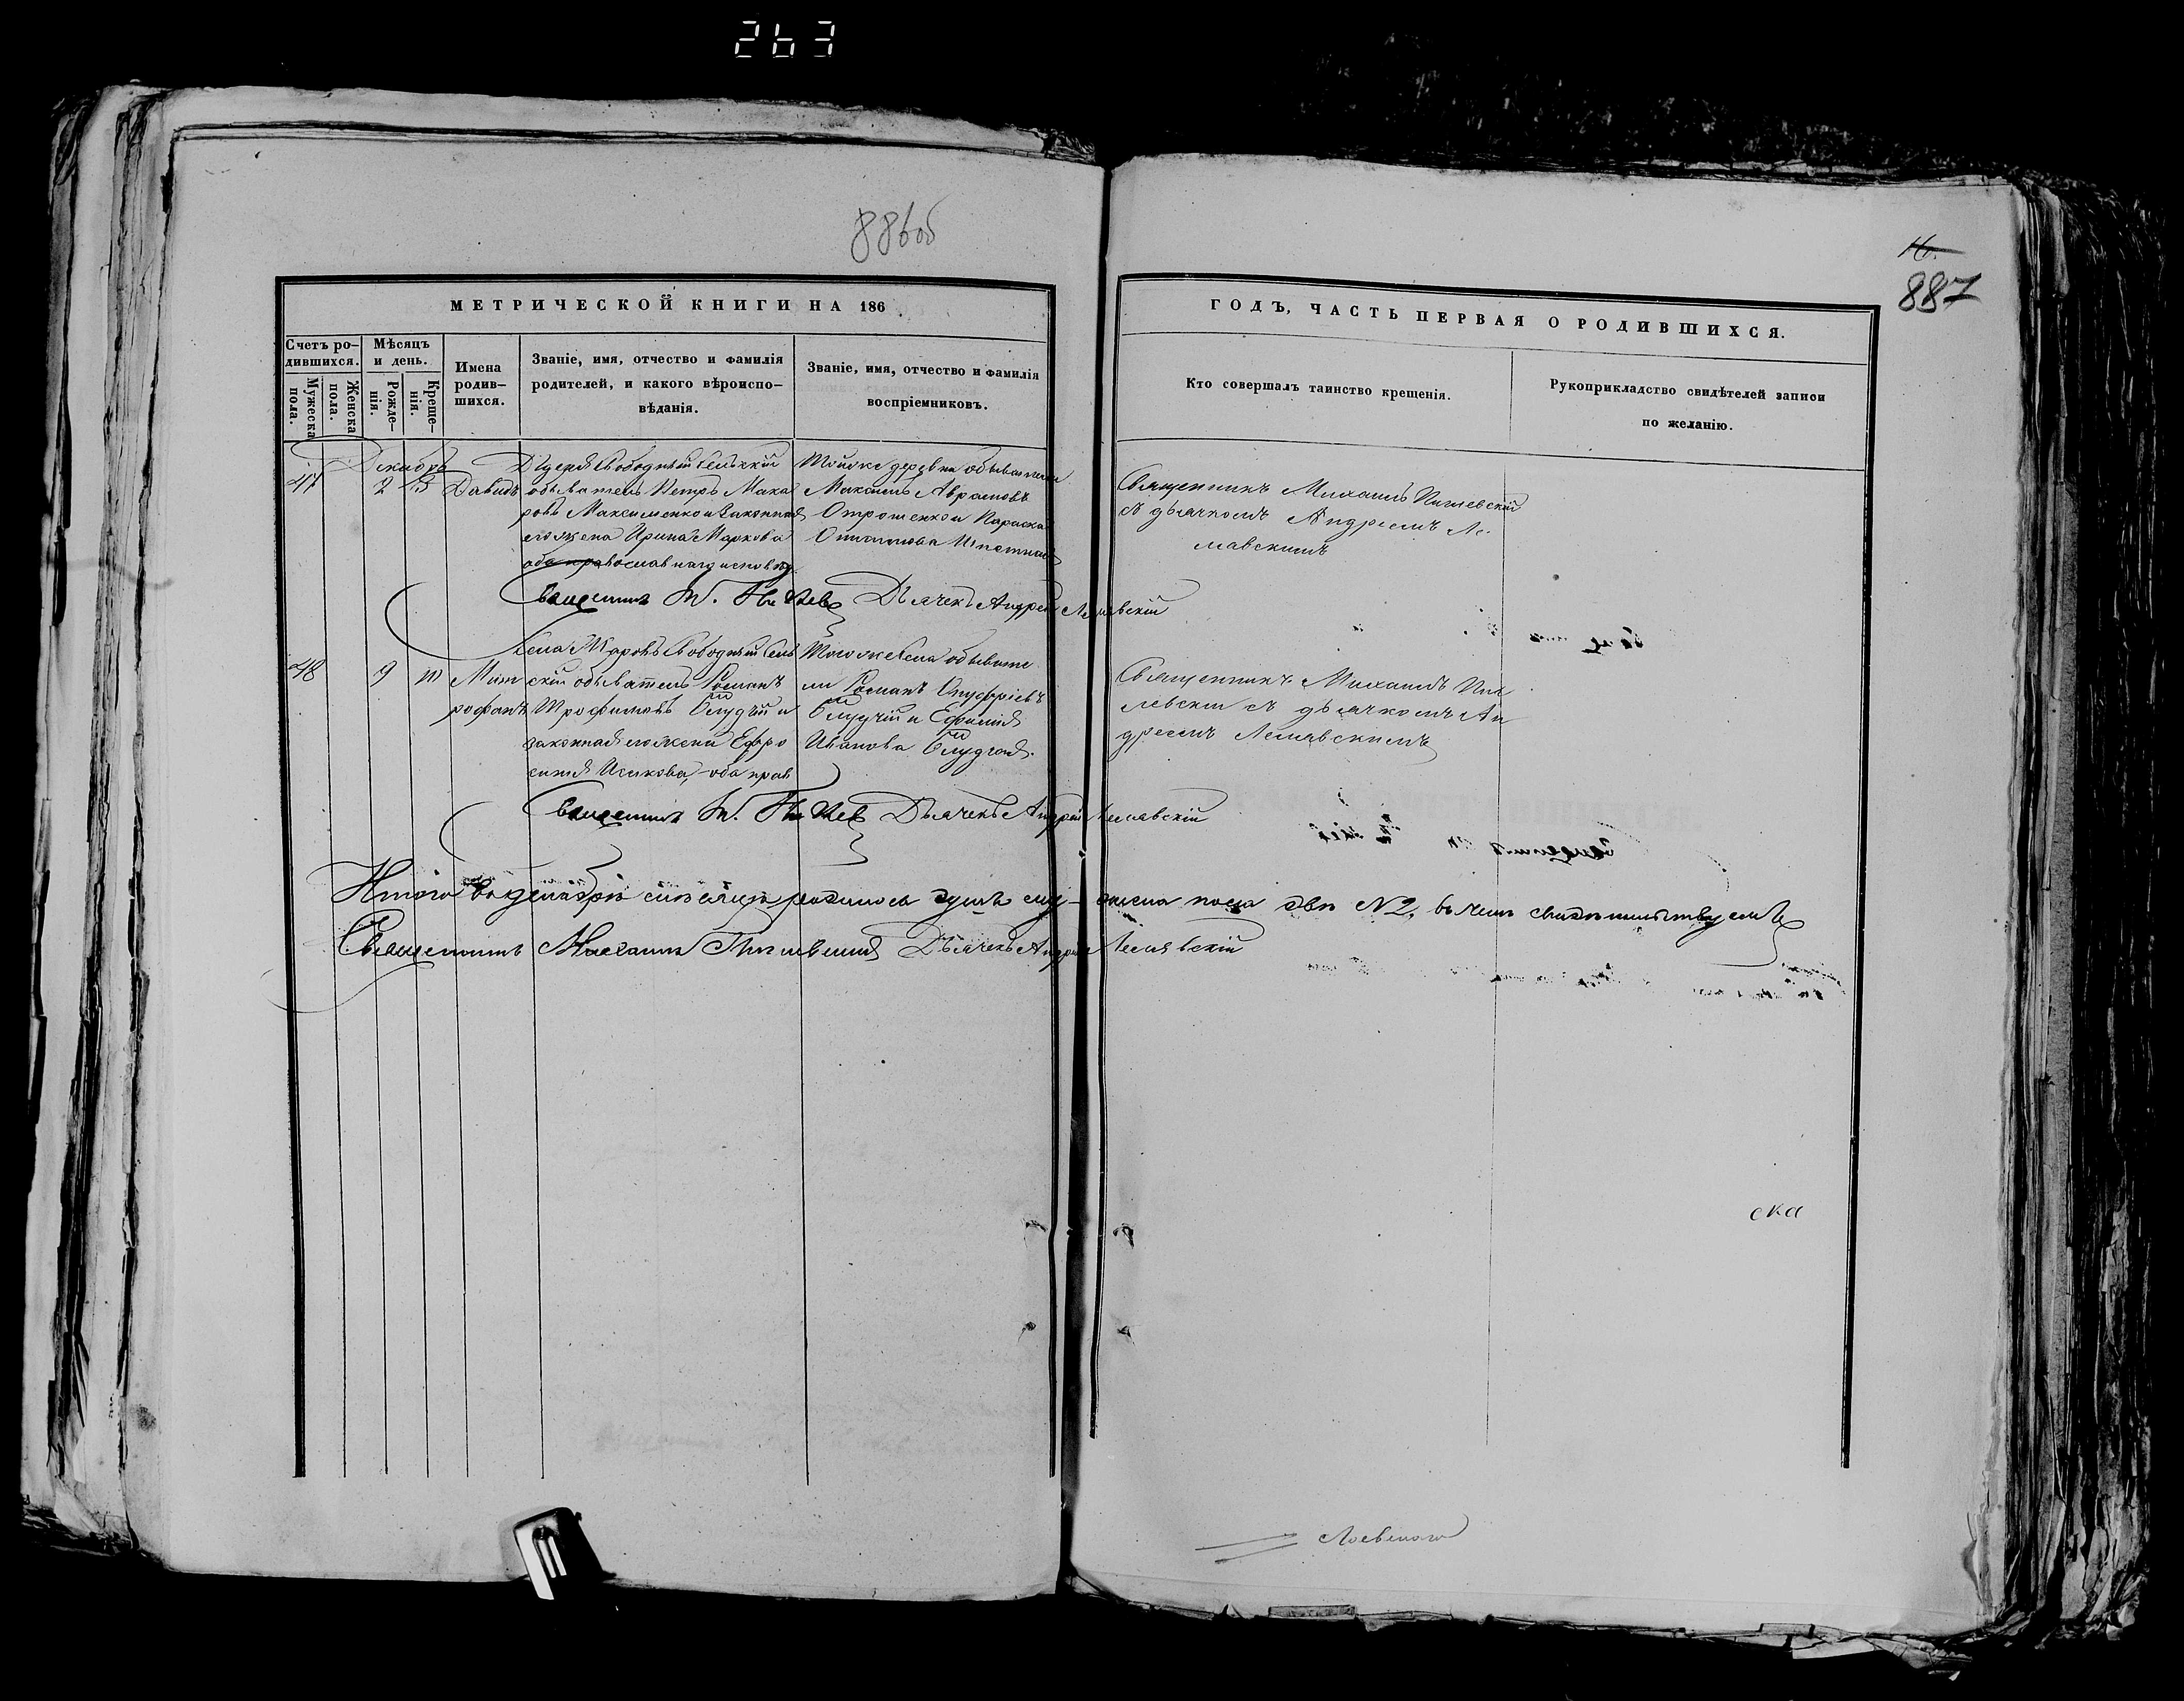 263
886об
16.
887
МЕТРИЧЕСКОЙ КНИГИ НА 186
ГОДЪ, ЧАСТЬ ПЕРВАЯ О РОДИВШИХСЯ.
Счетъ ро-
дившихся.
Мужеска
пола.
Женска
пола.
Мѣсяцъ
и день.
Рожде-
нія.
Креще-
нія.
Имена
родив-
шихся.
Званіе, имя, отчество и фамилія
родителей, и какого вѣроиспо-
вѣданія.
Званіе, имя, отчество и фамилія
воспріемниковъ.
Кто совершалъ таинство крещенія.
Рукоприкладство свидѣтелей записи
по желанію.
Декабрь
47
2
Давидъ
Свободный сельскій
обыватель Петръ Мака
ровъ Максименко и законная
его жена Ирина Маркова
оба православнаго исповѣд.
Тойже деревни обыватели
Максимъ Аврамовъ
Отрошенко и Параска
Священникъ Михаилъ
съ дьячкомъ Андреемъ Ле-
мавскимъ
Священникъ М. Дьячекъ Андрей
48
9
10
Мит
рофанъ
Села Свободный сель
скій обыватель Романъ
Трофимовъ и
законная его жена Ефро
синія Исакова, оба прав
Тогоже села обывате
ли Романъ Онуфріевъ
и Ефимія
Иванова
Священникъ Михаилъ
съ дьячкомъ Ан
дреемъ
Священникъ М. Дьячекъ Андрей
Итого въ декабрѣ мѣсяцѣ родилось душъ муж- ска пола двѣ №2, въ чемъ свидѣтельствуемъ
Священникъ Михаилъ Дьячекъ Андрей
ска